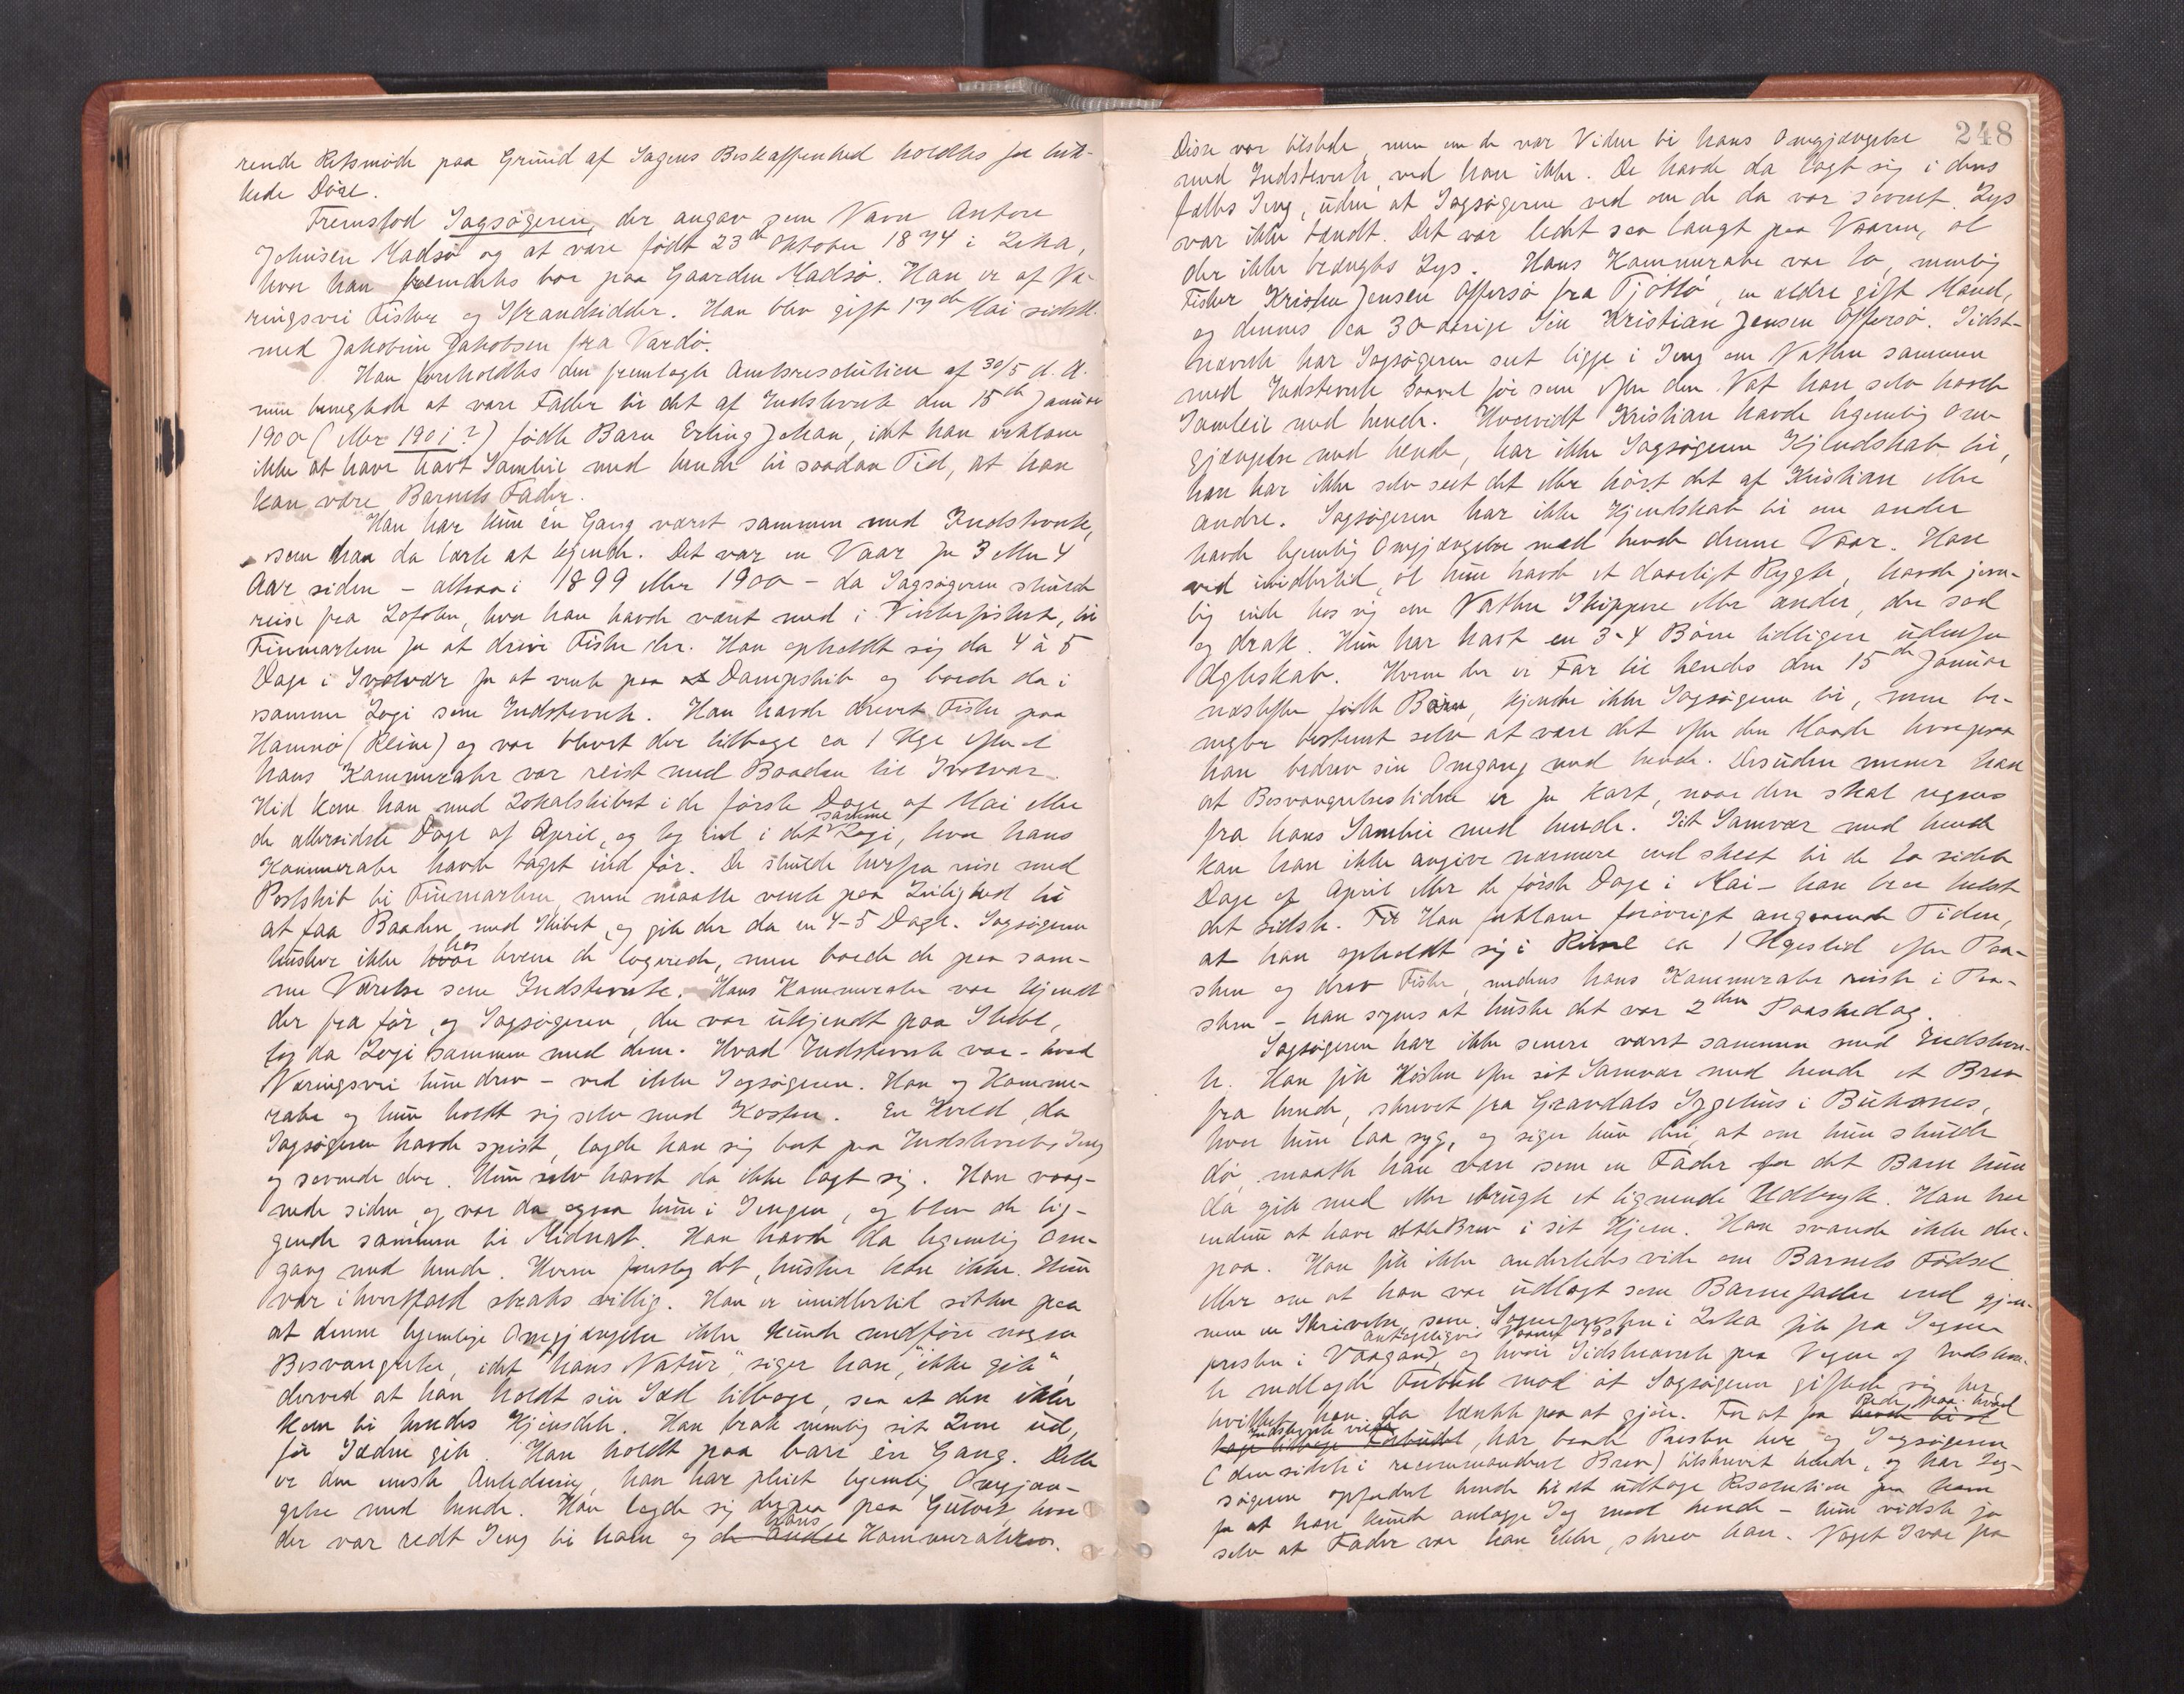 rende Retsmøde paa Grund af Sagens Beskaffenhed holdtes for luk-
kede Døre.
Fremstod Sagsøgeren, der angav som Navn Anton
Johnsen Madsø og at være født 23de Oktober 1874 i Leka,
hvor han fremdeles bor paa Gaarden Madsø. Han er af Næ-
ringsvei Fisker og Strandsidder. Han blev gift 17de Mai sidstl.
med Jakobine Jakobsen fra Vardø.
Han foreholdtes den fremlagte Amtsresolution af 30/5 d. A.
men benegtede at være Fader til det af Indstevnte den 15de Januar
1900 (eller 1901?) fødte Barn Erling Johan, idet han erklærer
ikke at have havt Samleie med hende til saadan Tid, at han
kan være Barnets Fader.
Han har kun én Gang været sammen med Indstevnte,
som han da lærte at kjende. Det var en Vaar for 3 eller 4
Aar siden – altsaa i 1899 eller 1900 – da Sagsøgeren skulde
reise fra Lofoten, hvor han havde været med i Vinterfisket, til
Finmarken for at drive Fiske der. Han opholdt sig da 4 à 5
Dage i Svolvær for at vente paa et Dampskib og boede da i
samme Logi som Indstevnte. Han havde drevet Fiske paa
Hamnø (Reine) og var blevet der tilbage ca 1 Uge efter at
hans Kammerater var reist med Baaden til Svolvær.
Hid kom han med Lokalskibet i de første Dage af Mai eller
de allersidste Dage af April, og tog ind i det samme Logi, hvor hans
Kammerater havde taget ind før. De skulde herfra reise med
Postskib til Finmarken, men maatte vente paa Leilighed til
at faa Baaden med Skibet, og gik der da en 4-5 Dage. Sagsøgeren
husker ikke hvor hos hvem de logerede, men boede de paa sam-
me Værelse som Indstevnte. Hans Kammerater var kjendt
der fra før, og Sagsøgeren, der var ukjendt paa Stedet,
tog da Logi sammen med dem. Hvad Indstevnte var – hvad
Næringsvei hun drev – ved ikke Sagsøgeren. Han og Kamme-
rater og hun holdt sig selv med Kosten. En Kveld, da
Sagsøgeren havde spist, lagde han sig bort paa Indstevntes Seng
og sovnede der. Hun selv havde da ikke lagt sig. Han vaag-
nede siden, og var da ogsaa hun i Sengen, og blev de lig-
gende sammen til Midnat. Han havde da legemlig Om-
gang med hende. Hvem foreslog det, husker han ikke. Hun
var ihvertfald straks villig. Han er imidlertid sikker paa
at denne legemlige Omgjængelse ikke kunde medføre nogen
Besvangrelse, idet "hans Natur", siger han, "ikke gik",
derved at han holdt sin Sæd tilbage, saa at den ikke
kom til hendes Kjønsdele. Han trak nemlig sit Lem ud,
før Sæden gik. Han holdt paa bare én Gang. Dette
er den eneste Anledning, han har pleiet legemlig Omgjæn-
gelse med hende. Han lagde sig derpaa paa Gulvet, hvor
der var redt Seng til ham og de andre hans Kammerater.
248
Disse var tilstede, men om de var Vidne til hans Omgjængelse
med Indstevnte, ved han ikke. De havde da lagt sig i deres
fælles Seng, uden at Sagsøgeren ved om de da var sovnet. Lys
var ikke tændt. Det var ledet saa langt paa Vaaren, at
der ikke brugtes Lys. Hans Kammerater var to, nemlig
Fisker Kristen Jensen Offersø fra Tjøttø, en ældre gift Mand,
og dennes ca 30 aarige Søn Kristian Jensen Offersø. Sidst-
nævnte har Sagsøgeren seet ligge i Seng om Natten sammen
med Indstevnte saavel før som efter den Nat han selv havde
Samleie med hende. Hvorvidt Kristian havde legemlig Om-
gjængelse med hende, har ikke Sagsøgeren Kjendskab til,
han har ikke selv seet det eller hørt det af Kristian eller
andre. Sagsøgeren har ikke Kjendskab til om andre
havde legemlig Omgjængelse med hende denne Vaar. Han
ved imidlertid, at hun havde et daarligt Rygte, havde jevn-
lig inde hos sig om Natten Skippere eller andre, der sad
og drak. Hun har havt en 3-4 Børn tidligere udenfor
Ægteskab. Hvem der er Far til hendes den 15de Januar
næstefter fødte Barn, kjender ikke Sagsøgeren til, men be-
negter bestemt selv at være det efter den Maade hvorpaa
han bedrev sin Omgang med hende. Desuden mener han
at Besvangrelsestiden er for kort, naar den skal regnes
fra hans Samleie med hende. Sit Samvær med hende
kan han ikke angive nærmere end skeet til de to sidste
Dage af April eller de første Dage i Mai – han tror helst
det sidste. Han forklarer forøvrigt angaaende Tiden,
at han opholdt sig i Reine ca 1 Ugestid efter Paa-
sken og drev Fiske, medens hans Kammerater reiste i Paa-
sken – han synes at huske det var 2den Paaskedag.
Sagsøgeren har ikke senere været sammen med Indstevn-
te. Han fik Høsten efter sit Samvær med hende et Brev
fra hende, skrevet fra Gravdals Sygehus i Buksnes,
hvor hun laa syg, og siger hun deri, at om hun skulde
dø, maatte han være som en Fader for det Barn hun
da gik med eller brugte et lignende Udtryk. Han tror
endnu at have dette Brev i sit Hjem. Han svarede ikke der-
paa. Han fik ikke anderledes vide om Barnets Fødsel
eller om at han var udlagt som Barnefader end gjen-
nem en Skrivelse, som Sognepresten i Leka fik fra Sogne-
presten i Vaagan antageligvis Vaaren 1901, og hvori Sidstnævnte paa Vegne af Indstevn-
te nedlagde Forbud mod at Sagsøgeren giftede sig her,
hvilket han da tænkte paa at gjøre. For at faa Rede paa hvad
Indstevnte vilde, har baade Presten her og Sagsøgeren
(den sidste i recommanderet Brev) tilskrevet hende, og har Sag-
søgeren opfordret hende til at udtage Resolution
for at han kunde anlægge Sag mod hende – hun vidste jo
selv at Fader var han ikke, skrev han. Noget Svar paa